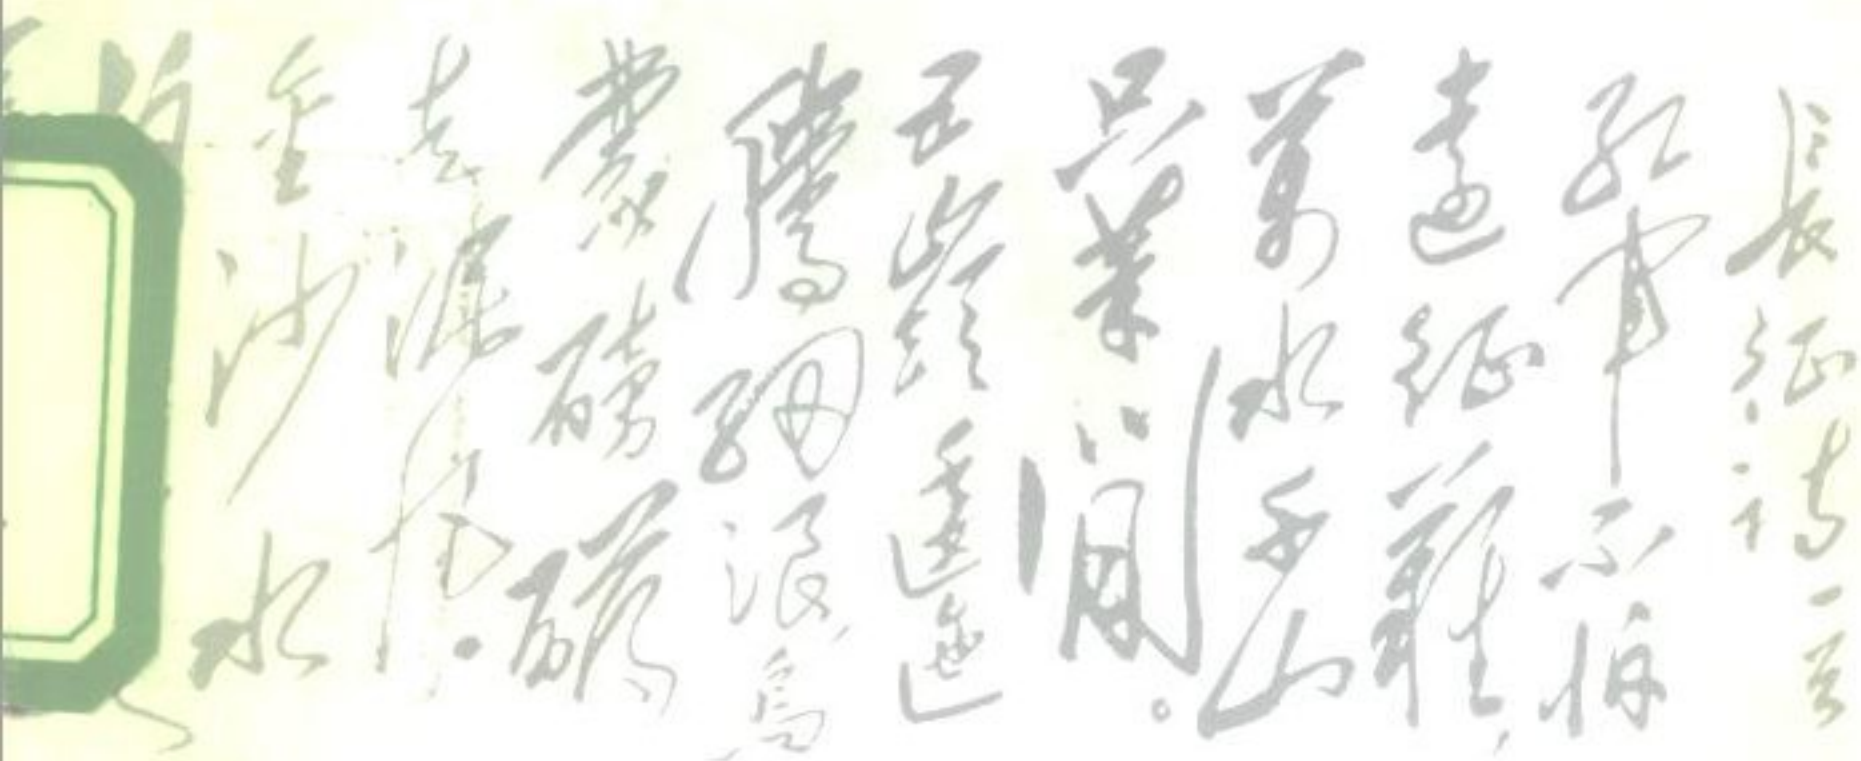 長征詩一首
紅軍不怕
遠征難
萬水千山
只等閒。
五嶺逶迤
騰細浪烏
蒙磅礴
走泥丸。
金沙水